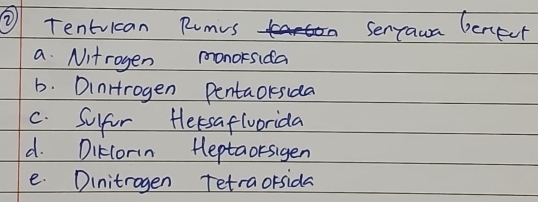 ② Tentukan Rumus karbon senyawa berikut
a. Nitrogen monoksida
b. Dinitrogen Pentaoksida
c. Sulfur Heksafluorida
d. Diklorin Heptaoksigen
e. Dinitrogen Tetraoksida